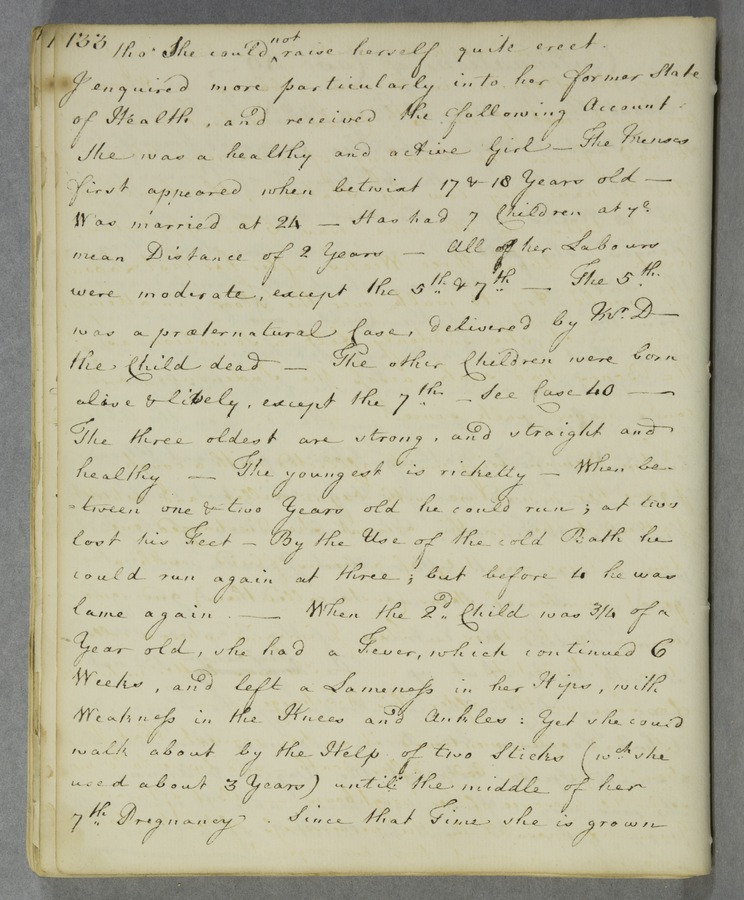 133 tho' She could not raise herself quite erect.
I enquired more particularly into her former State
of Health, and received the following Account.
She was a healthy and active Girl — The Menses
first appeared when betwixt 17 & 18 Years old —
Was married at 24 — Has had 7 Children at yᵉ
mean Distance of 2 Years — All of her Labours
were moderate, except the 5th & 7th — The 5th
was a præternatural Case, delivered by Mr. D—
the Child dead — The other Children were born
alive & lively, except the 7th — See Case 40 —
The three oldest are strong, and straight and
healthy — The youngest is ricketty — When be-
=tween one & two Years old he could run; at two
lost his Feet — By the Use of the cold Bath he
could run again at three; but before 4 he was
lame again. — When the 2d Child was 3/4 of a
Year old, she had a Fever, which continued 6
Weeks, and left a Lameness in her Hips, with
Weakness in the Knees and Ankles: Yet she could
walk about by the Help of two Sticks (wch she
used about 3 Years) until the middle of her
7th Pregnancy. Since that Time she is grown